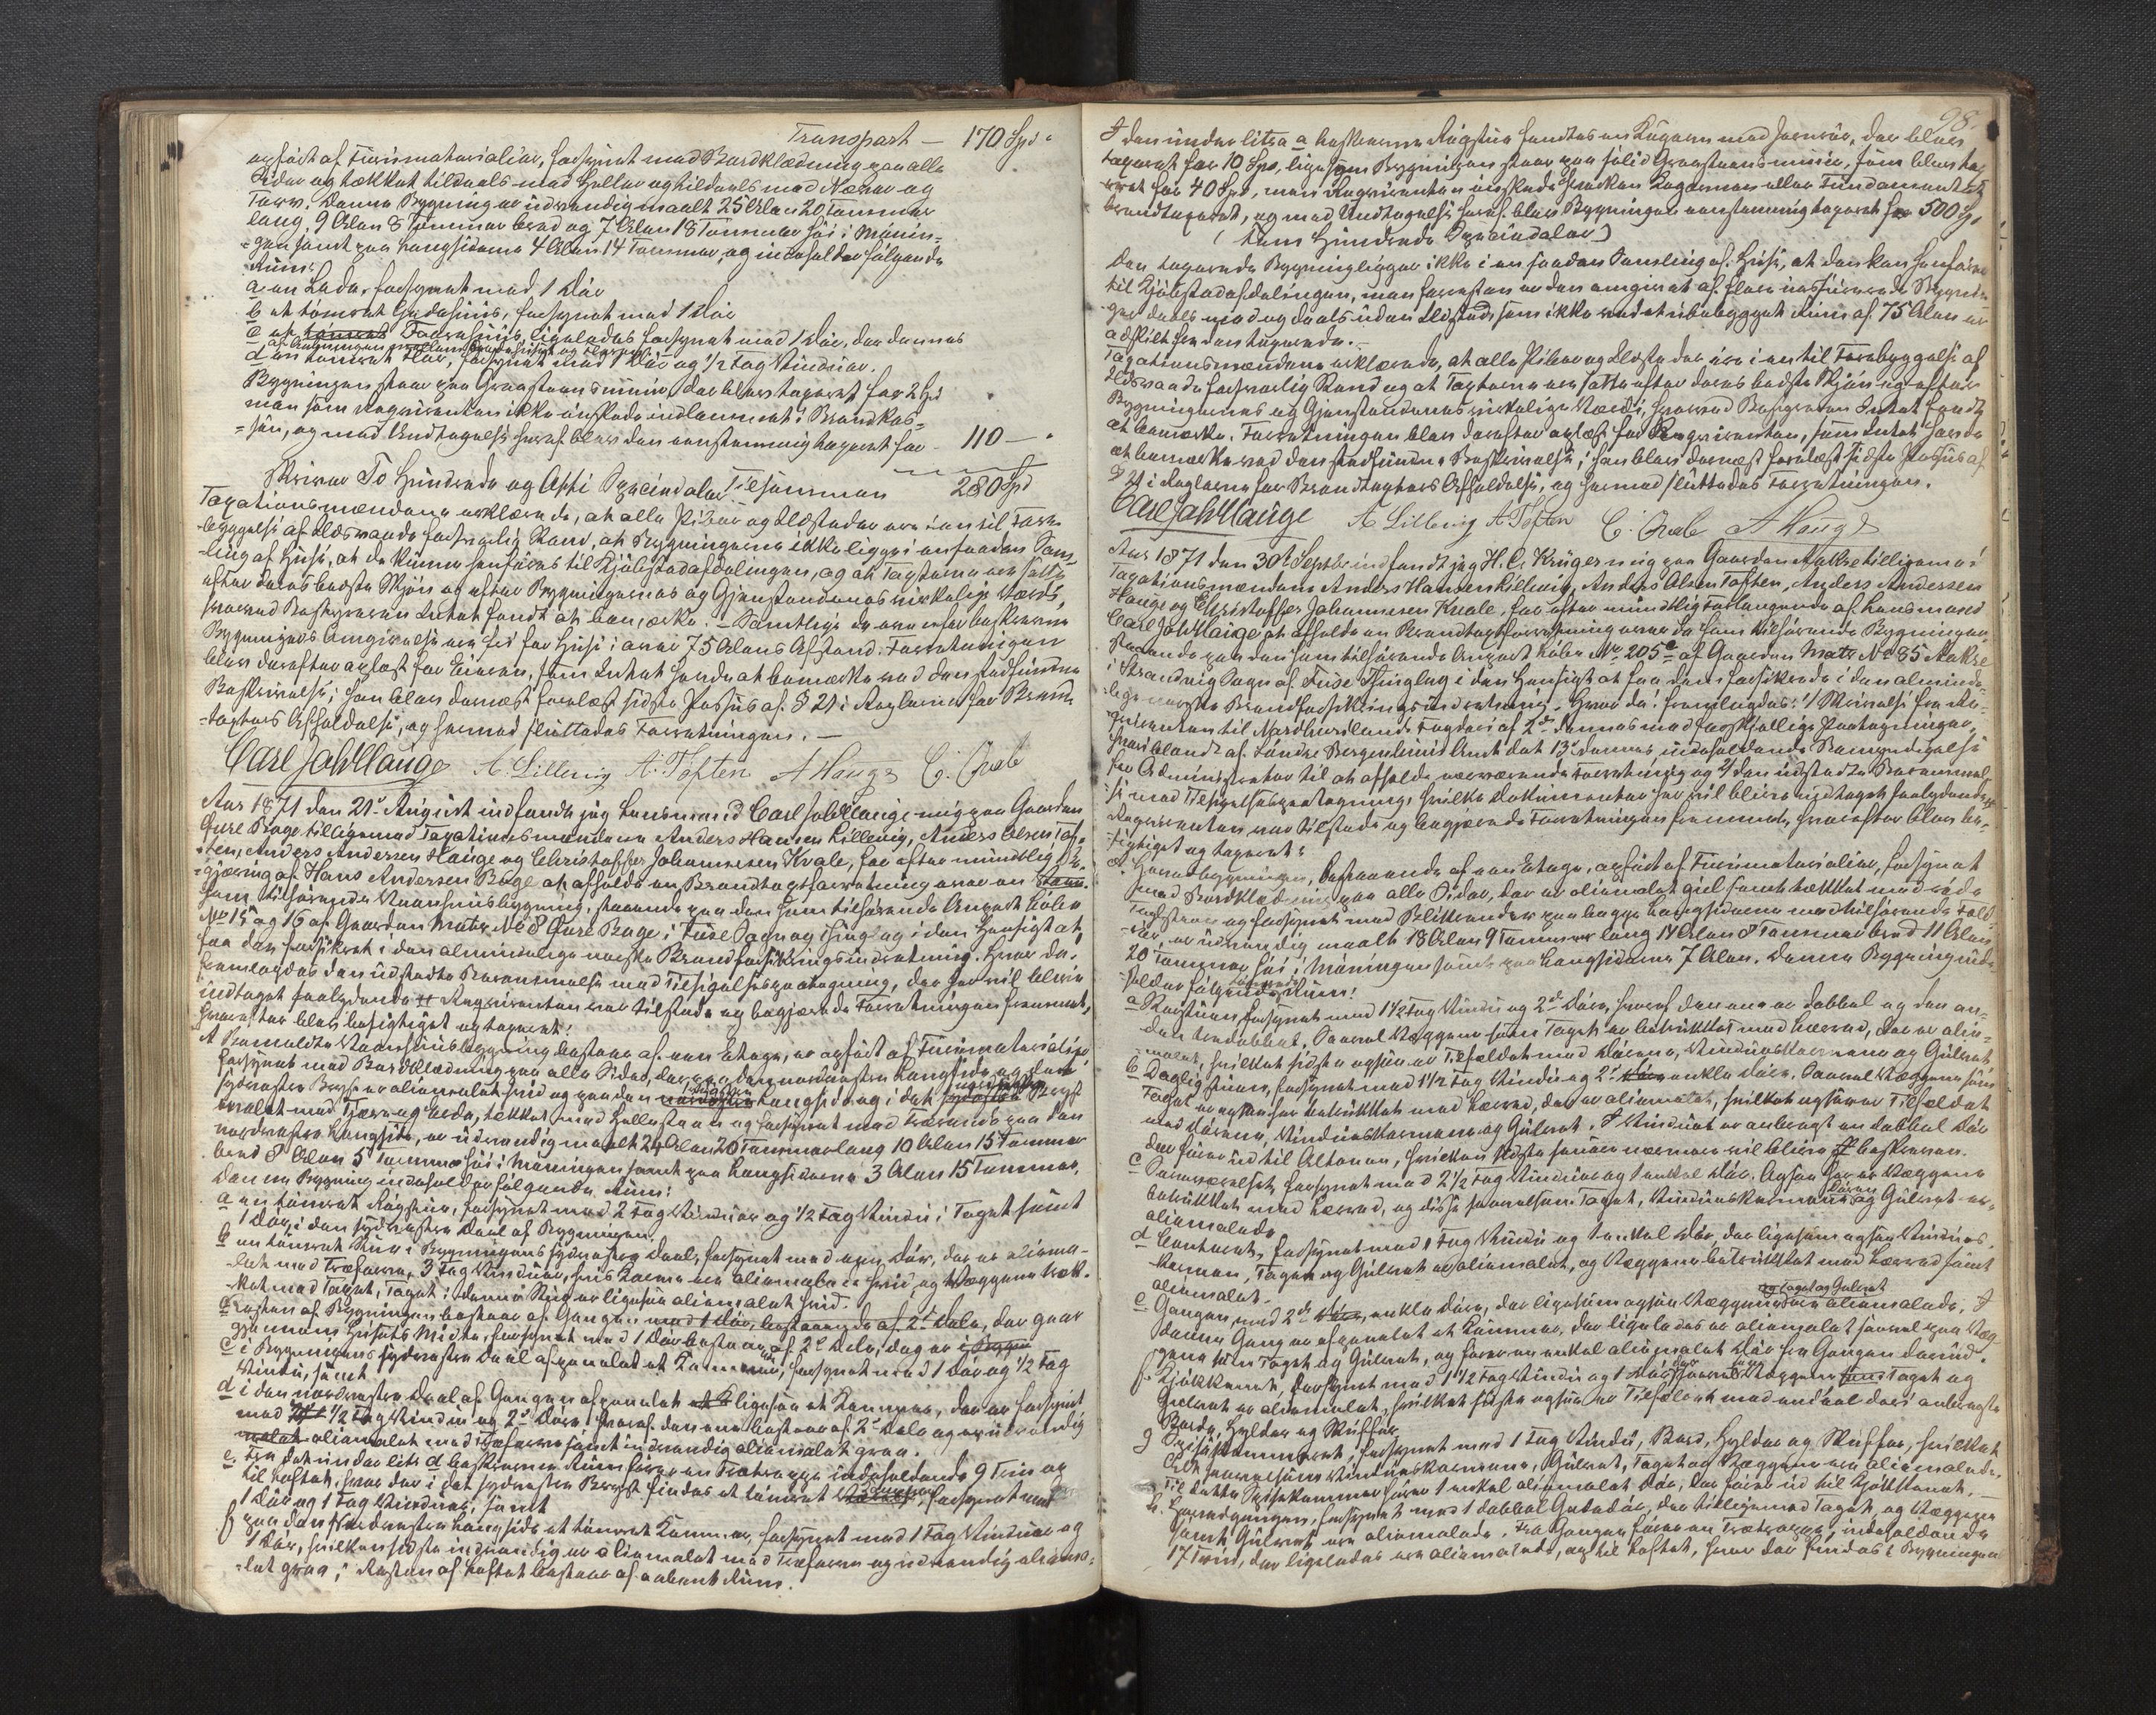 Transport — 170 Spd "
opført af Tiermaterialier, forsynet med Bordklædning paa alle
Sider og tækket tildeels med Heller og tildeels med Næver og
Torv. Denne Bygning er udvendig maalt 25 Alen 20 Tommer
lang, 9 Alen 8 Tommer bred og 7 Alen 18 Tommer høi i Mønin-
gen samt paa Langsiderne 4 Alen 14 Tommer, og indeholder følgende
Rum:
a en Lade, forsynet med 1 Dør
b et tømret Gedehuus, forsynet med 1 Dør
c et tømret Faarehuus ligeledes forsynet med 1 Dør, der dannes
af Aabningen mellem
d en tømret Flor, forsynet med 1 Dør og 1/2 Fag Vinduer.
Bygningen staar paa Graasteensmuur, der blev taxeret for 2 Spd
men som Reqvirenten ikke ønskede indlemmet i Brandkas-
sen, og med Undtagelse heraf blev den eenstemmig taxeret for — 110 — "
Skriver To Hundrede og Otti Speciedaler Tilsammen 280 Spd
Taxationsmændene erklærede, at alle Piber og Ildsteder ere i en til Fore-
byggelse af Ildsvaade forsvarlig Stand, at Bygningerne ikke ligge i en saadan Sam-
ling af Huse, at de kunne henføres til Kjøbstadafdelingen, og at Taxterne ere satte
efter deres bedste Skjøn og efter Bygningernes og Gjenstandenes virkelige Værdi,
hvorved Bestyreren Intet fandt at bemærke. — Samtlige de ovenfor beskrevne
Bygningers Omgivelse ere fri for Huse i over 75 Alens Afstand. Forretningen
blev derefter oplæst for Eieren, som Intet havde at bemærke ved den stedfundne
Beskrivelse; han blev dernæst forelæst sidste Passus af § 21 i Reglerne for Brand-
taxters Afholdelse, og hermed sluttedes Forretningen. —
Carl JahlHauge A. Lillevig A. Toften A Hauge C. Qvale
Aar 1871 den 21de August indfandt jeg Lensmand Carl JahlHauge mig paa Gaarden
Øvre Bøge tilligemed Taxationsmændene Anders Hansen Lillevig, Anders Olsen Tof-
ten, Anders Andersen Hauge og Christoffer Johannesen Kvale, for efter mundtlig Be-
gjæring af Hans Andersen Bøge at afholde en Brandtaxtforretning over en ham
ham tilhørende Vaaningsbygning, staaende paa den ham tilhørende Anpart Løbe
No 15a og 16 af Gaarden Matr. No 8 Øvre Bøge i Fuse Sogn og Thinglag i den Hensigt at
faa den forsikret i den almindelige norske Brandforsikringsindretning. Hvor da
fremlagdes den udstedte Berammelse med Tilsigelsespaategning, der her vil blive
indtaget saalydende # Reqvirenten var tilstede og begjærede Forretningen fremmet,
hvorefter blev besigtiget og taxeret:
A Bemeldte Vaaningsbygning bestaar af een Etage, er opført af Tiermaterialier,
forsynet med Bordklædning paa alle Sider, der paa den nordvestre Langside og den
sydvestre Bergs er oliemalet hvid og paa den Langside og i det Bergs
malet med Tjære og rødt, tækket med Hellesteen og forsynet med Tagrende paa den
nordvestre Langside, er udvendig maalt 24 Alen 20 Tommer lang 10 Alen 15 Tommer
bred 8 Alen 5 Tommer høi i Møningen samt paa Langsiderne 3 Alen 15 Tommer.
Denne Bygning indeholder følgende Rum:
a en tømret Røgstue, forsynet med 2 Fag Vinduer og 1/2 Fag Vindu i Taget samt
1 Dør, i den sydvestre Deel af Bygningen.
b en tømret Stue i Bygningens sydvestre Deel, forsynet med een Dør, der er oliema-
let med Træfarve, 3 Fag Vinduer, hvis Karme ere oliemalede hvid, og Væggene træk-
ket med Taget, Taget i denne Stue er ligesaa oliemalet hvid.
Resten af Bygningen bestaar af Gangen med 1 Dør, bestaaende af 2de Dele, der gaar
gjennem Husets Midte, forsynet med 1 Dør bestaaende af 2de Dele, dog er i Bygn
c i Bygningens sydvestre Deel afpanelet et Kammer, forsynet med 1 Dør og 1/2 Fag
Vindu, samt
d i den nordvestre Deel af Gangen afpanelet et ligesaa et Kammer, der er forsynet
med 1/2 Fag Vindu og 2de Døre hvoraf den ene bestaar af 2de Dele og er udvendig
malet oliemalet med Træfarve samt indvendig oliemalet graa.
e. Fra det under litr d beskrevne Rum fører en Trætrappe indeholdende 9 Trin op
til Loftet, hvor der i det sydvestre Bergs findes et tømret, forsynet med
1 Dør og 1 Fag Vinduer, samt
f paa den Nordvestre Langside et tømret Kammer, forsynet med 1 Fag Vinduer og
1 Dør, hvilken sidste indvendig er oliemalet med Træfarve og udvendig oliema-
let graa; Resten af Loftet bestaar af aabent Rum.
98.
I den under litra a beskrevne Røgstue fandtes en Bagerovn med Jernrør, der blev
taxeret for 10 Spd, ligesom Bygningen staar paa solid Graasteensmuur, som blev tax-
eret for 40 Spd, men Reqvirenten ønskede hverken Bagerovnen eller Fundamentet
brandtaxeret, og med Undtagelse heraf blev Bygningen eenstemmig taxeret for 500 Spd
(Fem Hundrede Speciedaler)
Den taxerede Bygning ligger ikke i en saadan Samling af Huse, at den kan henføres
til Kjøbstadafdelingen, men forresten er den omgivet af flere uassurerede Bygnin-
ger deels med og deels uden Ildsteder som ikke ved et ubebygget Rum af 75 Alen er
adskilt fra den taxerede. —
Taxationsmændene erklærede, at alle Piber og Ildsteder ere i en til Forebyggelse af
Ildsvaade forsvarlig Stand og at Taxterne ere satte efter deres bedste Skjøn og efter
Bygningernes og Gjenstandenes virkelige Værdi, hvorved Bestyreren Intet fandt
at bemærke. Forretningen blev derefter oplæst for Reqvirenten, som Intet havde
at bemærke ved den stedfundne Beskrivelse; han blev dernæst forelæst sidste Passus af
§ 21 i Reglerne for Brandtaxters Afholdelse, og hermed sluttedes Forretningen.
Carl JahlHauge A Lillevig A. Toften C. Qvale A Hauge
Aar 1871 den 30te Septbr indfandt jeg H. C. Krüger mig paa Gaarden Aakre tilligemed
Taxationsmændene Anders Hansen Lillevig, Anders Olsen Toften, Anders Andersen
Hauge og Christoffer Johannesen Kvale, for efter mundtlig Forlangende af Lensmand
Carl JahlHauge at afholde en Brandtaxtforretning over de ham tilhørende Bygninger,
staaende paa den ham tilhørende Anpart Løbe No 205c af Gaarden Matr No 85 Aakre
i Strandvig Sogn af Fuse Thinglag i den Hensigt at faa dem forsikrede i den alminde-
lige norske Brandforsikringsindretning. Hvor da fremlagdes: 1/ Skrivelse fra Re-
qvirenten til Nordhordlands Fogderi af 2de dennes med forskjellige Paategninger,
hvoriblandt af Søndre Bergenhuus Amt dat. 13de dennes indeholdende Bemyndigelse
for Administrator til at afholde nærværende Forretning og 2/ den udstedte Berammel-
se med Tilsigelsespaategning, hvilke Dokumenter her vil blive indtaget saalydende #
Reqvirenten var tilstede og begjærede Forretningen fremmet, hvorefter blev be-
sigtiget og taxeret:
A. Hovedbygningen, bestaaende af een Etage, opført af Tiermaterialier, forsynet
med Bordklædning paa alle Sider, der er oliemalet guul samt tækket med røde
Tagsteen og forsynet med Bliktagrender paa begge Langsiderne med tilhørende Fald-
rør, er udvendig maalt 18 Alen 9 Tommer lang 14 Alen 8 Tommer bred 11 Alen
20 Tommer høi i Møningen samt paa Langsiderne 7 Alen. Denne Bygning inde-
holder følgende tømrede Rum:
a Storstuen, forsynet med 1 1/2 Fag Vindu og 2de Døre, hvoraf den ene er dobbel og den an-
den tredobbel. Saavel Væggene som Taget er betrukket med Lærred, der er olie-
malet, hvilket sidste ogsaa er Tilfældet med Dørene, Vindueskarmene og Gulvet.
b Dagligstuen, forsynet med 1 1/2 Fag Vindu og 2de Døre enkle Døre. Saavel Væggene som
Taget er ogsaa her betrukket med Lærred, der er oliemalet, hvilket ogsaa er Tilfældet
med Dørene, Vindueskarmene og Gulvet. I Vinduet er anbragt en dobbel Dør
der fører ud til Altanen, hvilken sidste senere nærmere vil blive # beskreven.
c Soveværelset, forsynet med 2 1/2 Fag Vinduer og 1 enkel Dør. Ogsaa her er Væggene
betrukket med Lærred, og disse saavelsom Taget, Vindueskarmene Døren og Gulvet er
oliemalede.
d Contoret, forsynet med 1 Fag Vindu og 1 enkel Dør, der ligesom ogsaa Vindues-
karmen, Taget og Gulvet er oliemalet, og Væggene betrukket med Lærred samt
oliemalet.
e Gangen, med 2de Døre, enkle Døre, der ligesom ogsaa Væggene og Taget og Gulvet ere oliemalede. I
denne Gang er afpanelet et Kammer, der ligeledes er oliemalet saavel paa Væg-
gene som Taget og Gulvet, og fører en enkel oliemalet Dør fra Gangen derind.
f. Kjøkkenet, forsynet med 1 1/2 Fag Vindu og 1 Dør, der saavel som Væggene som Taget og
Gulvet er oliemalet, hvilket sidste ogsaa er Tilfældet med endeel deri anbragte
Borde, Hylder og Skuffer.
g Spisekammeret, forsynet med 1 Fag Vindu, Bord, Hylder og Skuffer, hvilket
Alt saavelsom Vindueskarmene, Gulvet, Taget og Væggene ere oliemalede.
Til dette Spisekammer fører 1 enkel oliemalet Dør, der fører ud til Kjøkkenet. —
h. Hovedgangen, forsynet med 1 dobbel Gadedør, der tilligemed Taget, og Væggene
samt Gulvet ere oliemalede. Fra Gangen fører en Trætrappe, indeholdende
17 Trin, der ligeledes ere oliemalede, op til Loftet, hvor der findes i Bygningen